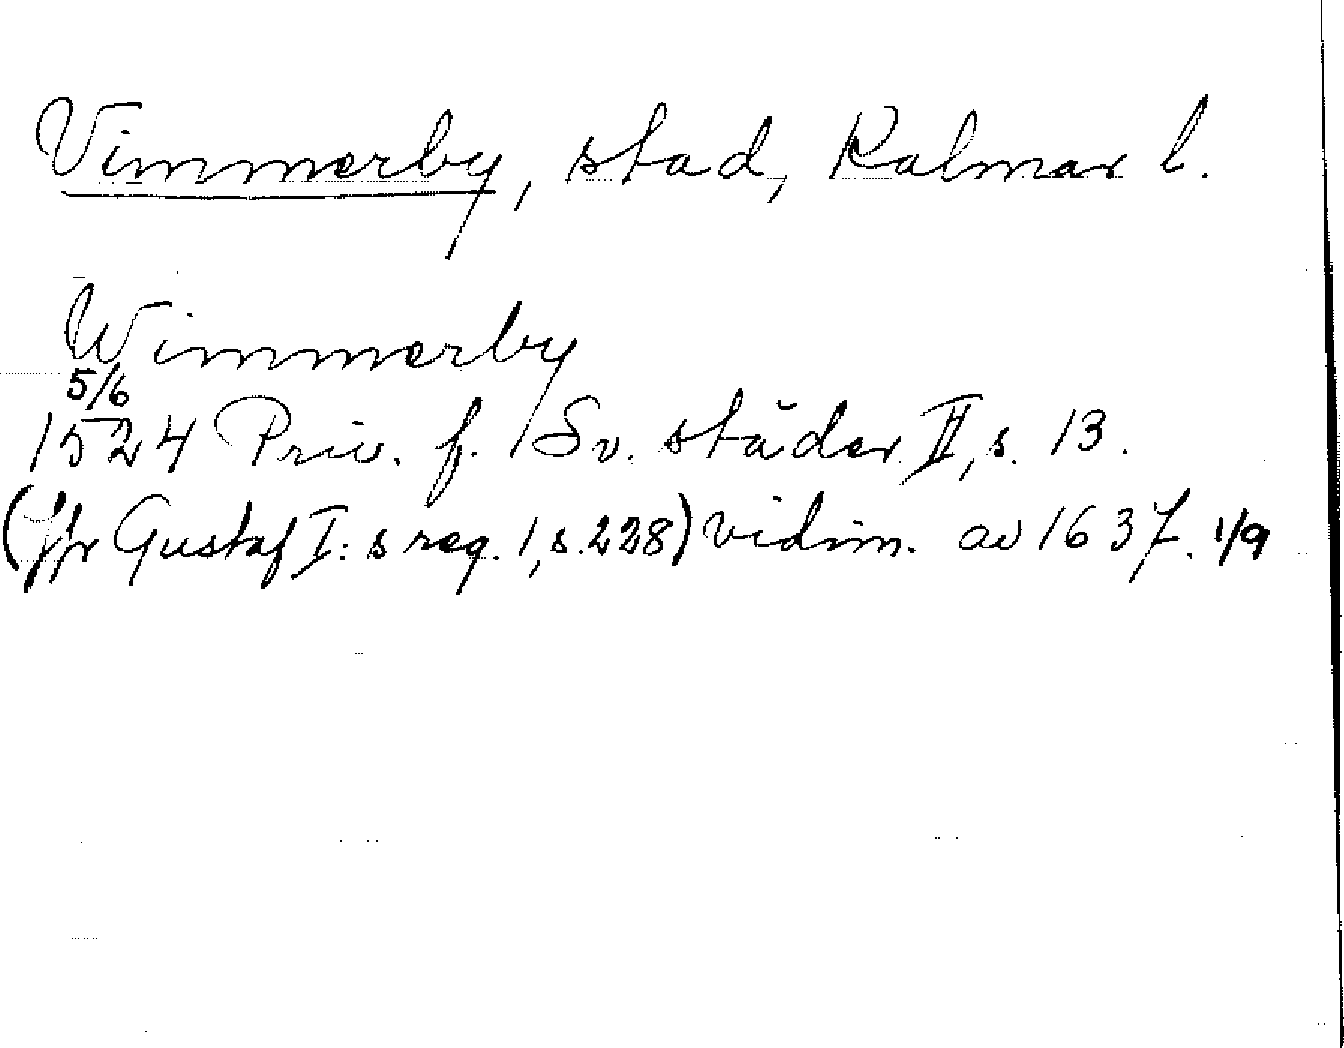 Vimmerby, stad, Kalmar l.
Wimmerby
5/6
1524 Priv. f. Sv. städer II, s. 13.
(jfr Gustaf I:s reg. 1, s. 228) vidim. av 1637. 1/9